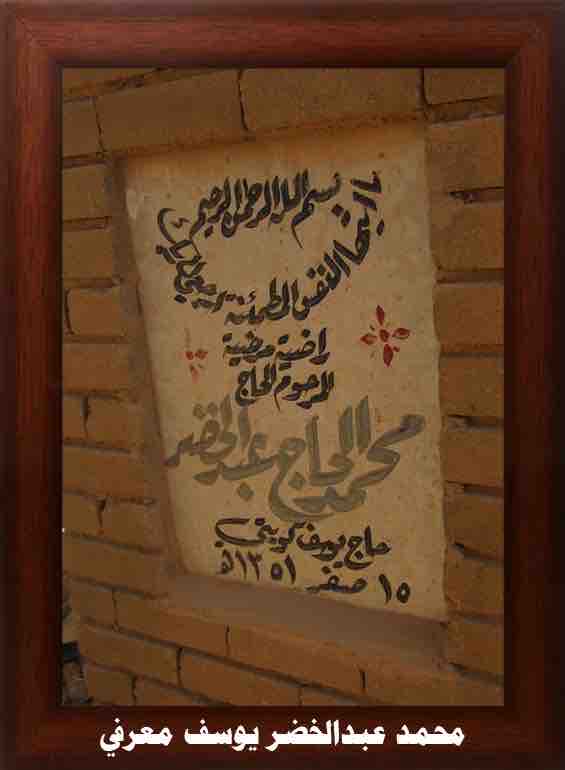 بسم الله الرحمن الرحيم
يا ايتها النفس المطمئنة ارجعي الى ربك
راضية مرضية
المرحوم الحاج
محمد الحاج عبد الخضر
حاج يوسف كويتي
١٥ صفر ١٣٥١ه
محمد عبدالخضر يوسف معرفي